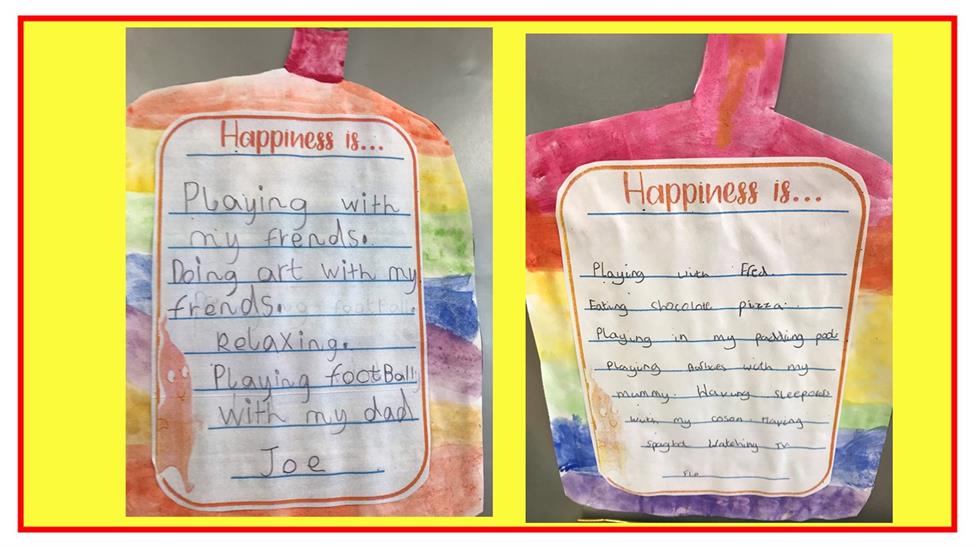 Happiness is...
Playing with
my frends.
Doing art with my
frends.
Relaxing.
Playing footBall
with my dad
Joe
Happiness is...
Playing with Fred.
Eating chocolate pizza.
Playing in my padding pool
Playing with my
mummy. Having
with my cosan. Having
Watching TV